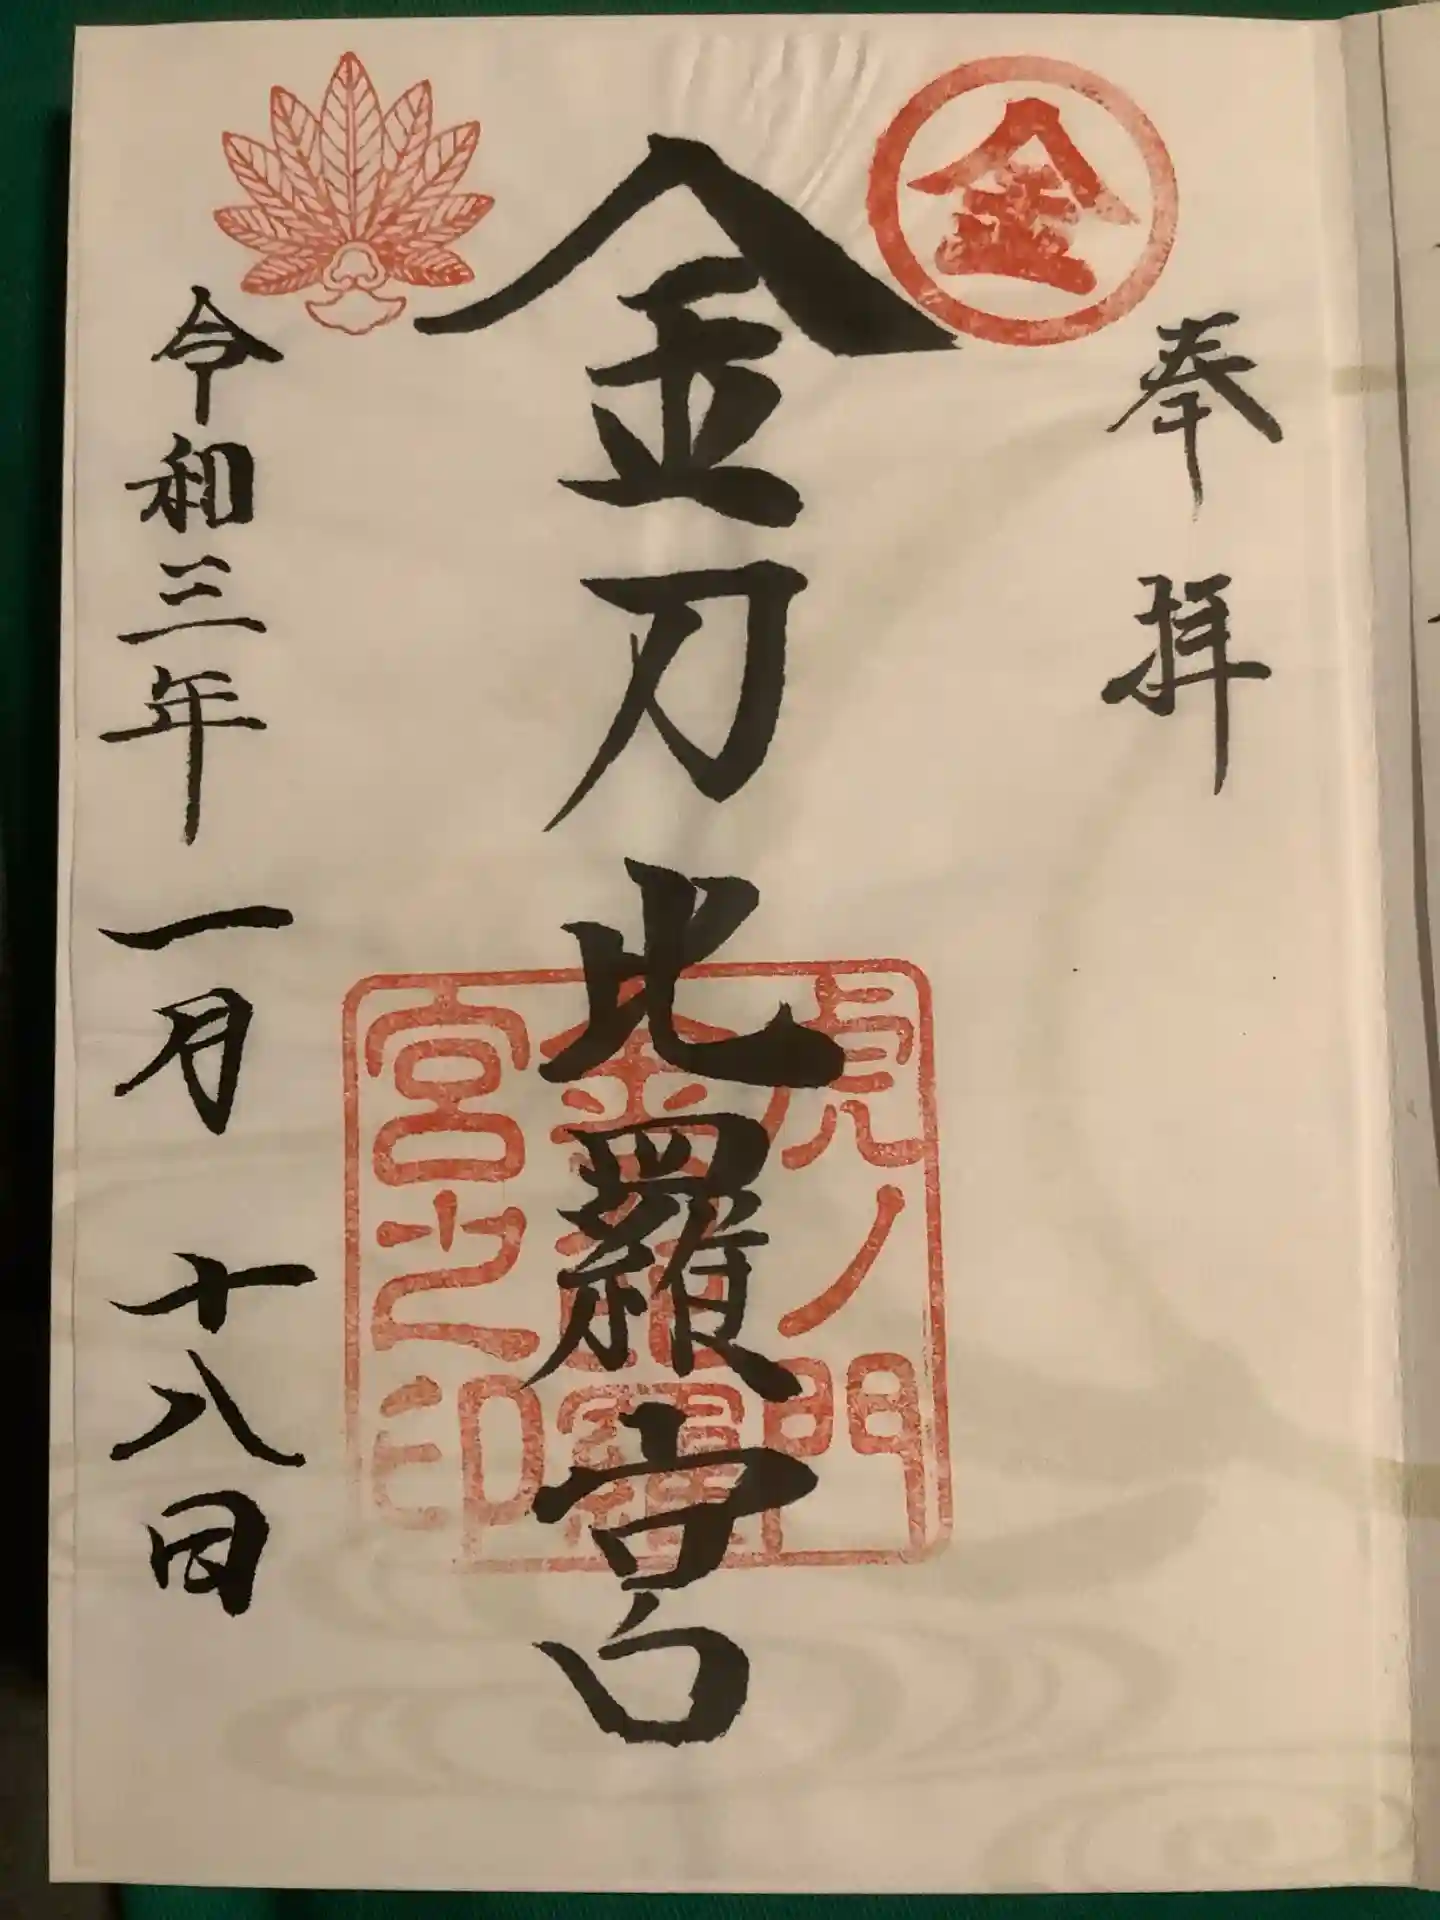 奉拝
金
金刀比羅宮
虎ノ門
金刀比羅
宮之印
令和三年一月十八日